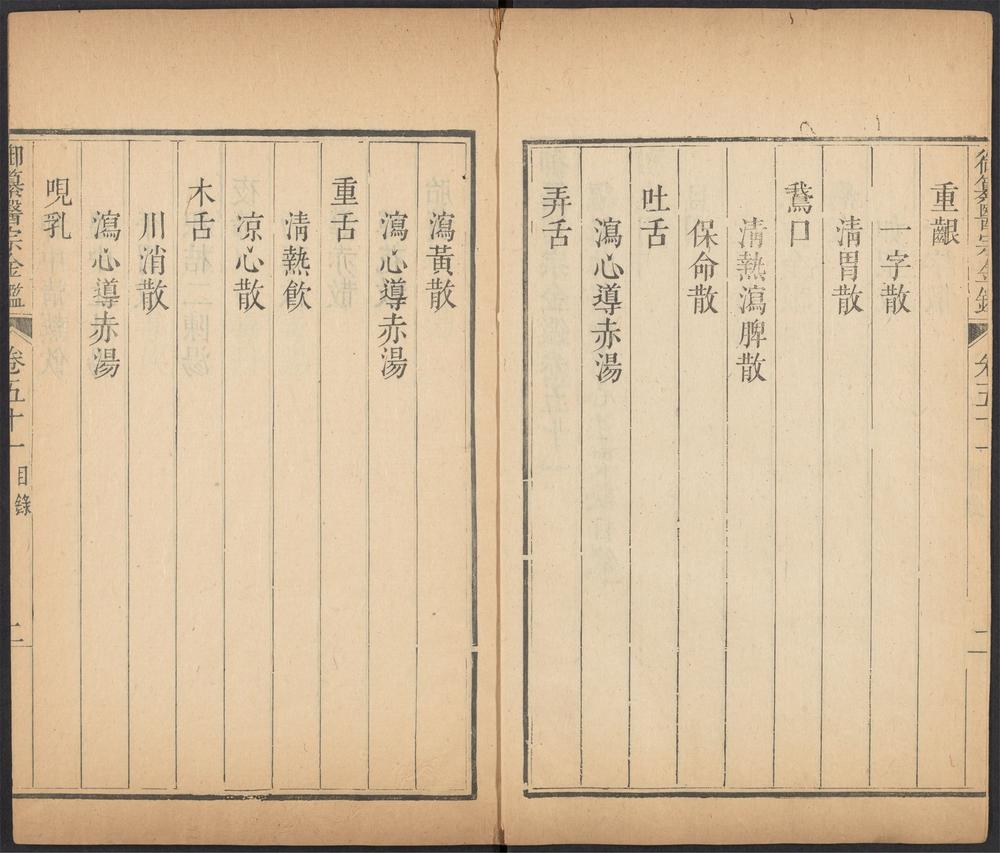 御纂醫宗金鑑 卷五十一 二
重齦
一字散
清胃散
鵞口
清熱瀉脾散
保命散
吐舌
瀉心導赤湯
弄舌
瀉黃散
瀉心導赤湯
重舌
清熱飲
凉心散
木舌
川消散
瀉心導赤湯
哯乳
御纂醫宗金鑑 卷五十一 目錄 二